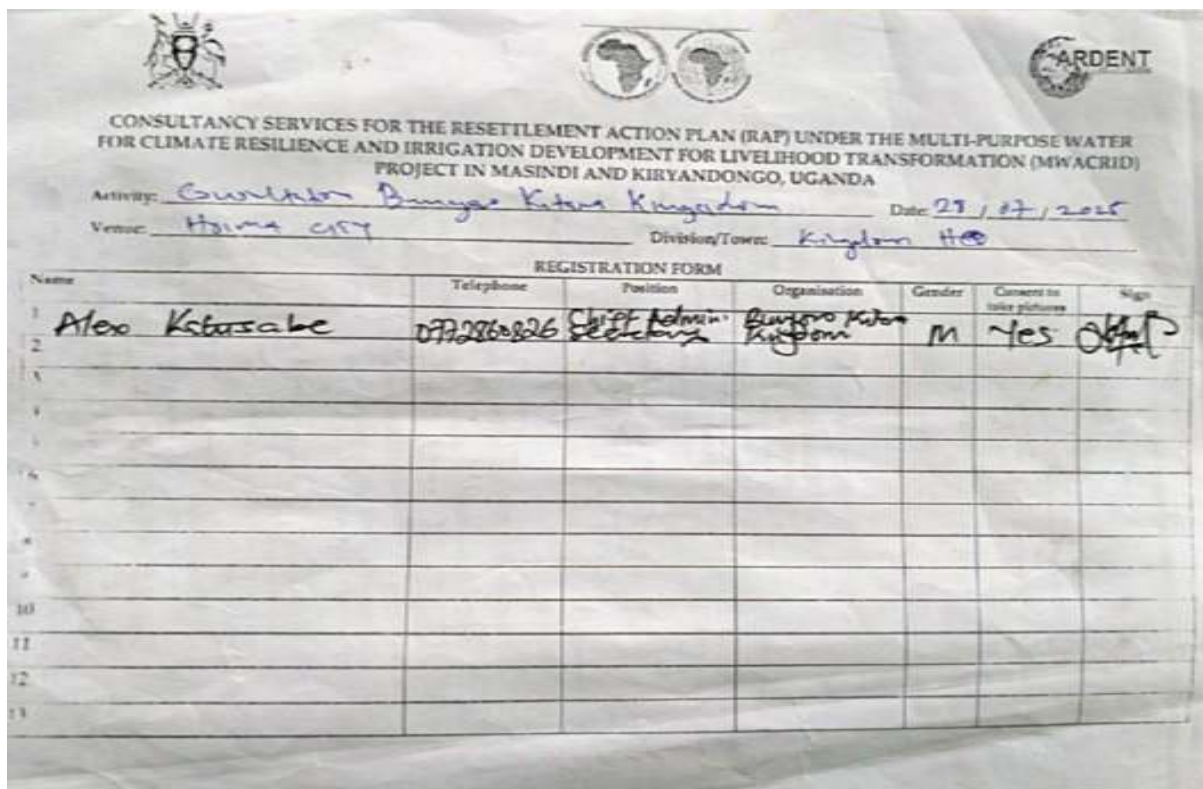 ARDENT
CONSULTANCY SERVICES FOR THE RESETTLEMENT ACTION PLAN (RAP) UNDER THE MULTI-PURPOSE WATER
FOR CLIMATE RESILIENCE AND IRRIGATION DEVELOPMENT FOR LIVELIHOOD TRANSFORMATION (MWACRID)
PROJECT IN MASINDI AND KIRYANDONGO, UGANDA
Activity: Kitara Kingdom Date: 07 / 2025
Venue: Hoima City Division/Town: Kingdom
REGISTRATION FORM
Name Telephone Position Organisation Gender Consent to take pictures Sign
1 Alex Katusabe Chief Admin. Secretary Bunyoro Kitara Kingdom M Yes
2
3
4
5
6
7
8
9
10
11
12
13